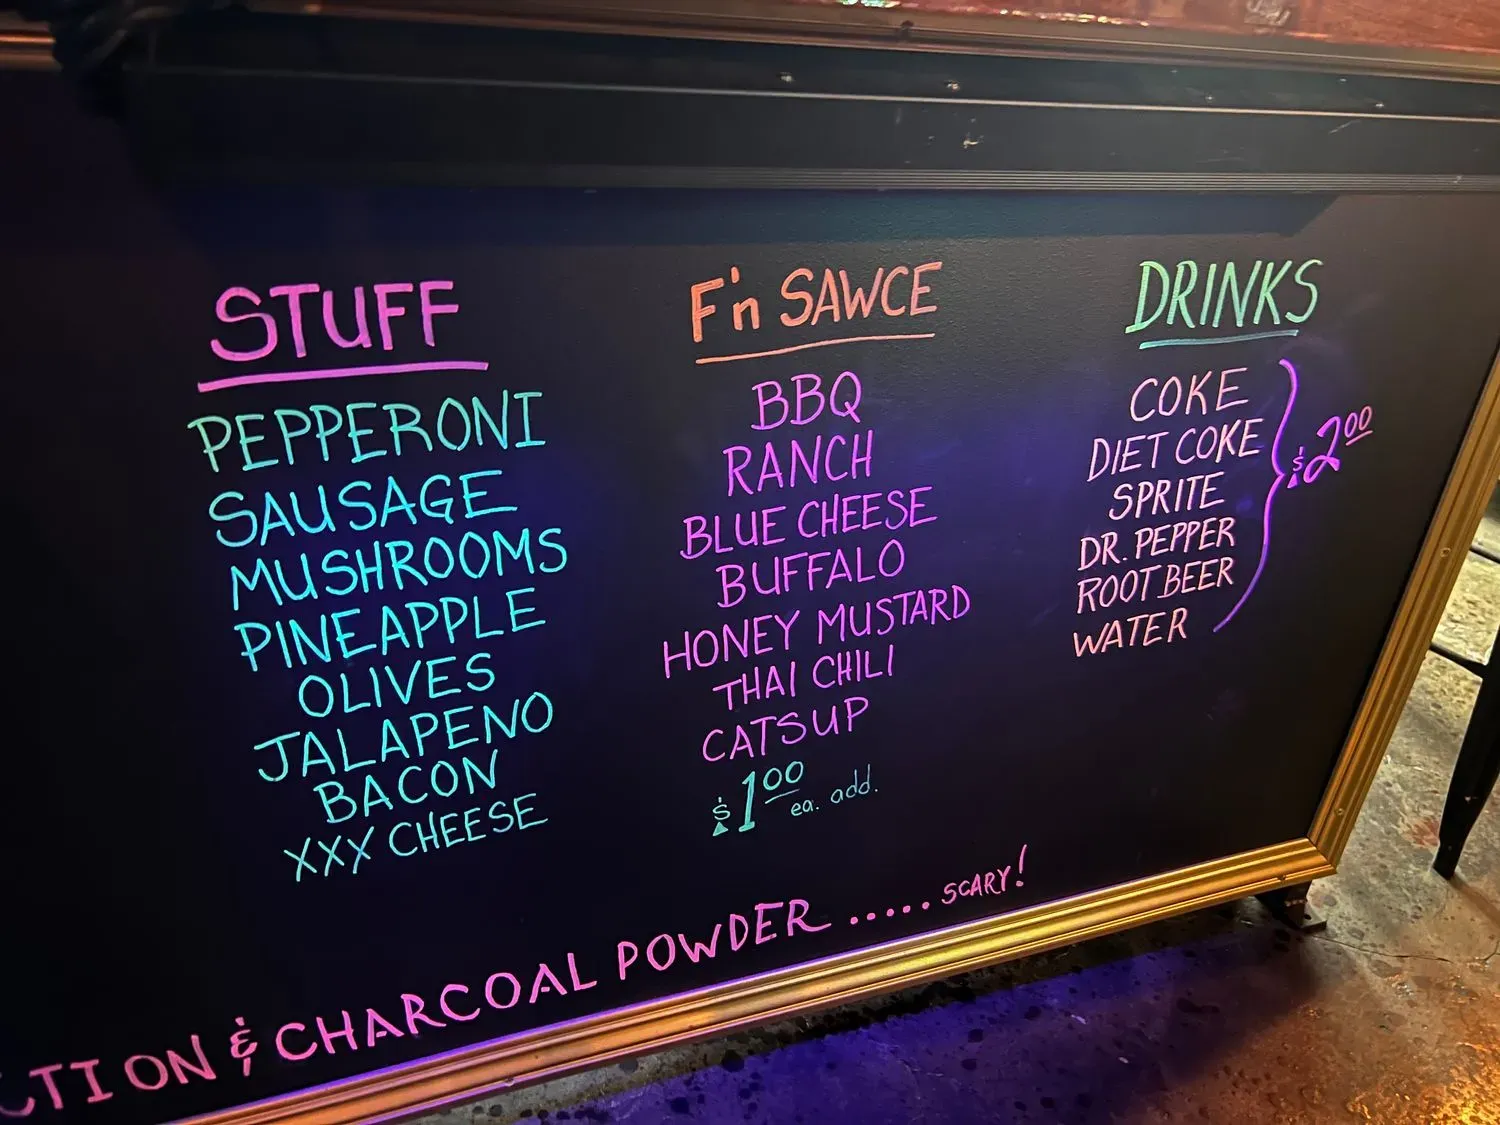 STUFF
PEPPERONI
SAUSAGE
MUSHROOMS
PINEAPPLE
OLIVES
JALAPENO
BACON
XXX CHEESE
F'n SAWCE
BBQ
RANCH
BLUE CHEESE
BUFFALO
HONEY MUSTARD
THAI CHILI
CATSUP
$1.00 ea. add.
DRINKS
COKE
DIET COKE
SPRITE
DR. PEPPER
ROOT BEER
WATER
$2.00
CTION & CHARCOAL POWDER ..... SCARY!